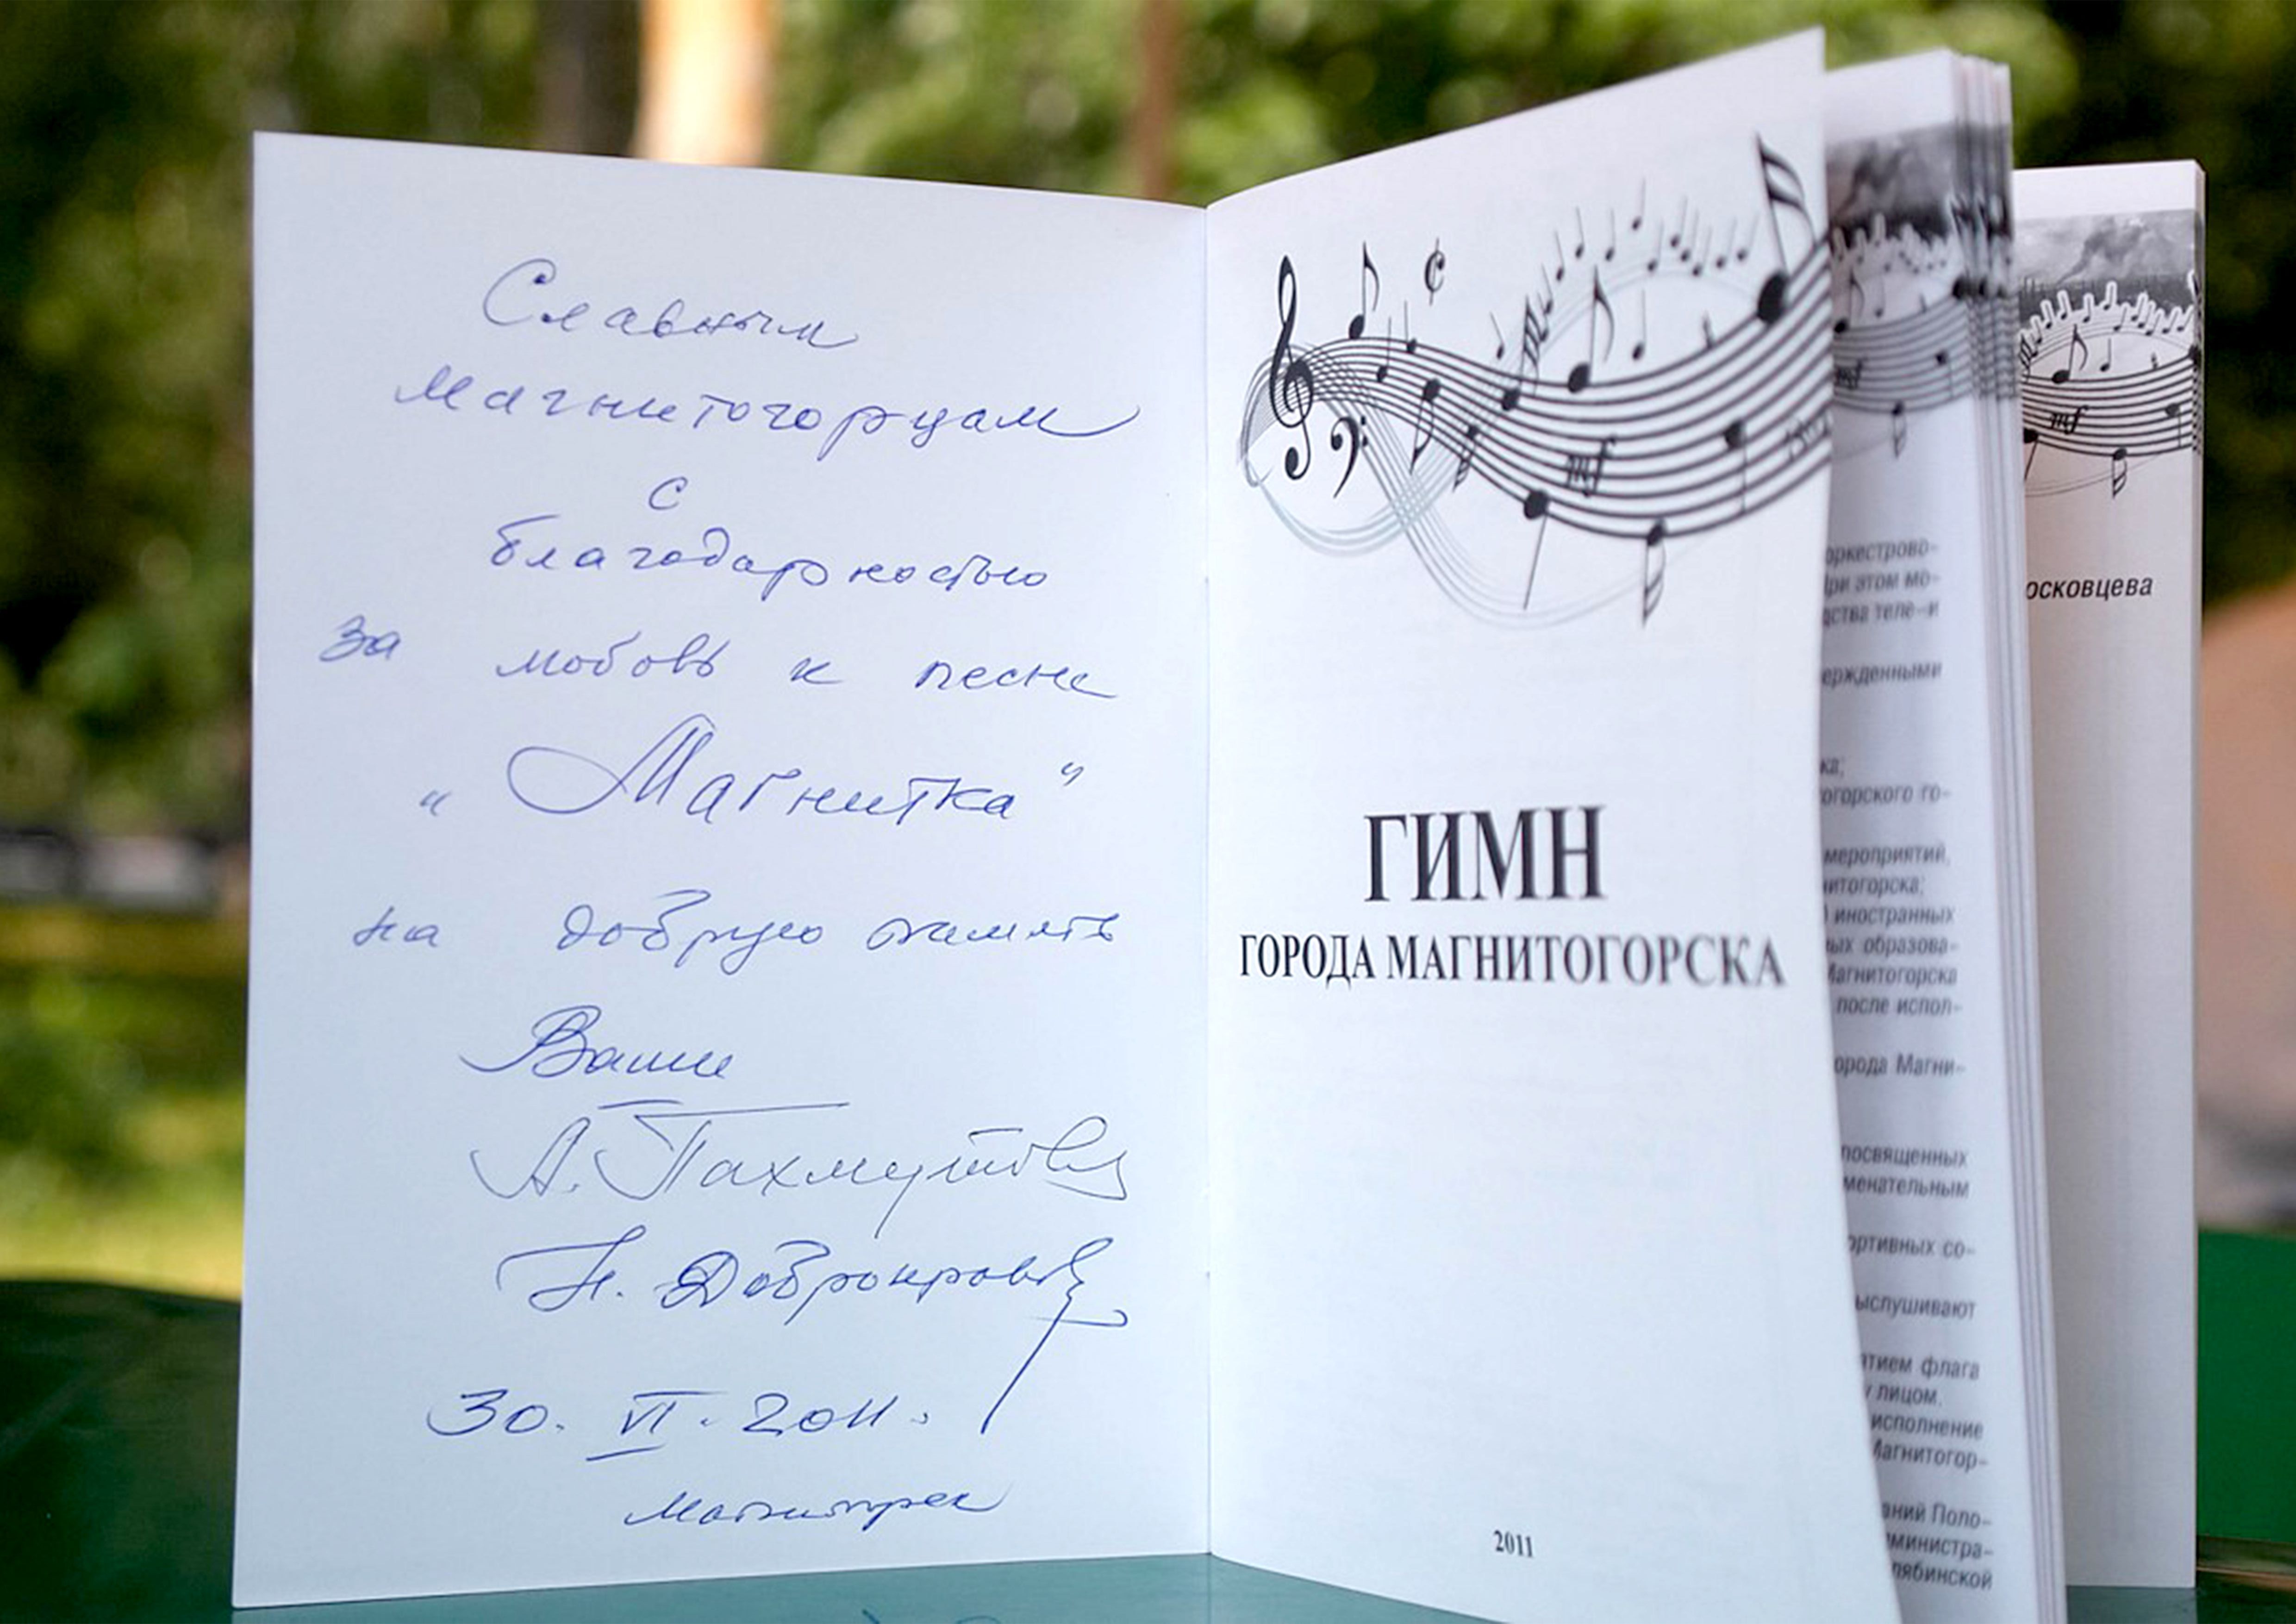 Славным
магнитогорцам
с
благодарностью
за любовь к песне
„Магнитка"
на добрую память
Ваши
А. Пахмутова
Н. Добронравов
30. VI. 2011.
Магнитогорск
mf
ГИМН
ГОРОДА МАГНИТОГОРСКА
2011
оркестрово-
При этом мо-
дства теле-и
ержденными
ка;
огорского го-
мероприятий,
нитогорска;
иностранных
ых образова-
Магнитогорска
после испол-
орода Магни-
посвященных
менательным
ортивных со-
ыслушивают
ятием флага
у лицом.
исполнение
Магнитогор-
аний Поло-
министра-
лябинской
mf
mf
осковцева